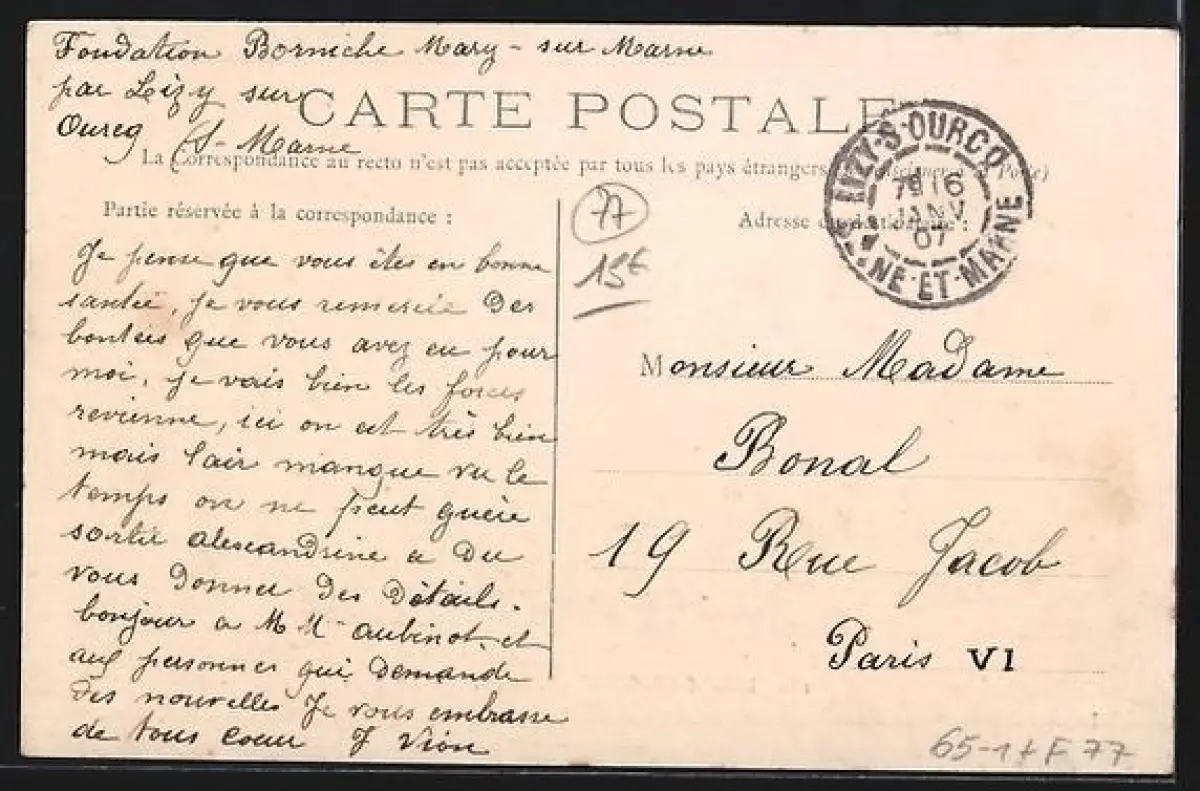 Fondation Borniche Mary - sur Marne
par Lizy sur
Ourcq (S-Marne
CARTE POSTALE
La Correspondance au recto n'est pas acceptée par tous les pays étrangers Poste)
LIZY-S-OURCQ
7 16
JANV
07
NE-ET-MARNE
Partie réservée à la correspondance :
Je pense que vous êtes en bonne
santée, je vous remercie des
bontées que vous avez eu pour
moi, je vais bien les forces
revienne, ici on est très bien
mais l'air manque vu le
temps on ne peut guère
sortie alexandrine a du
vous donner des détails.
bonjour a M Mme aubinot, et
aux personnes qui demande
des nouvelles Je vous embrasse
de tous coeur J Vion
77
15€
Adresse du destinataire :
Monsieur Madame
Bonal
19 Rue Jacob
Paris VI
65-17 F 77